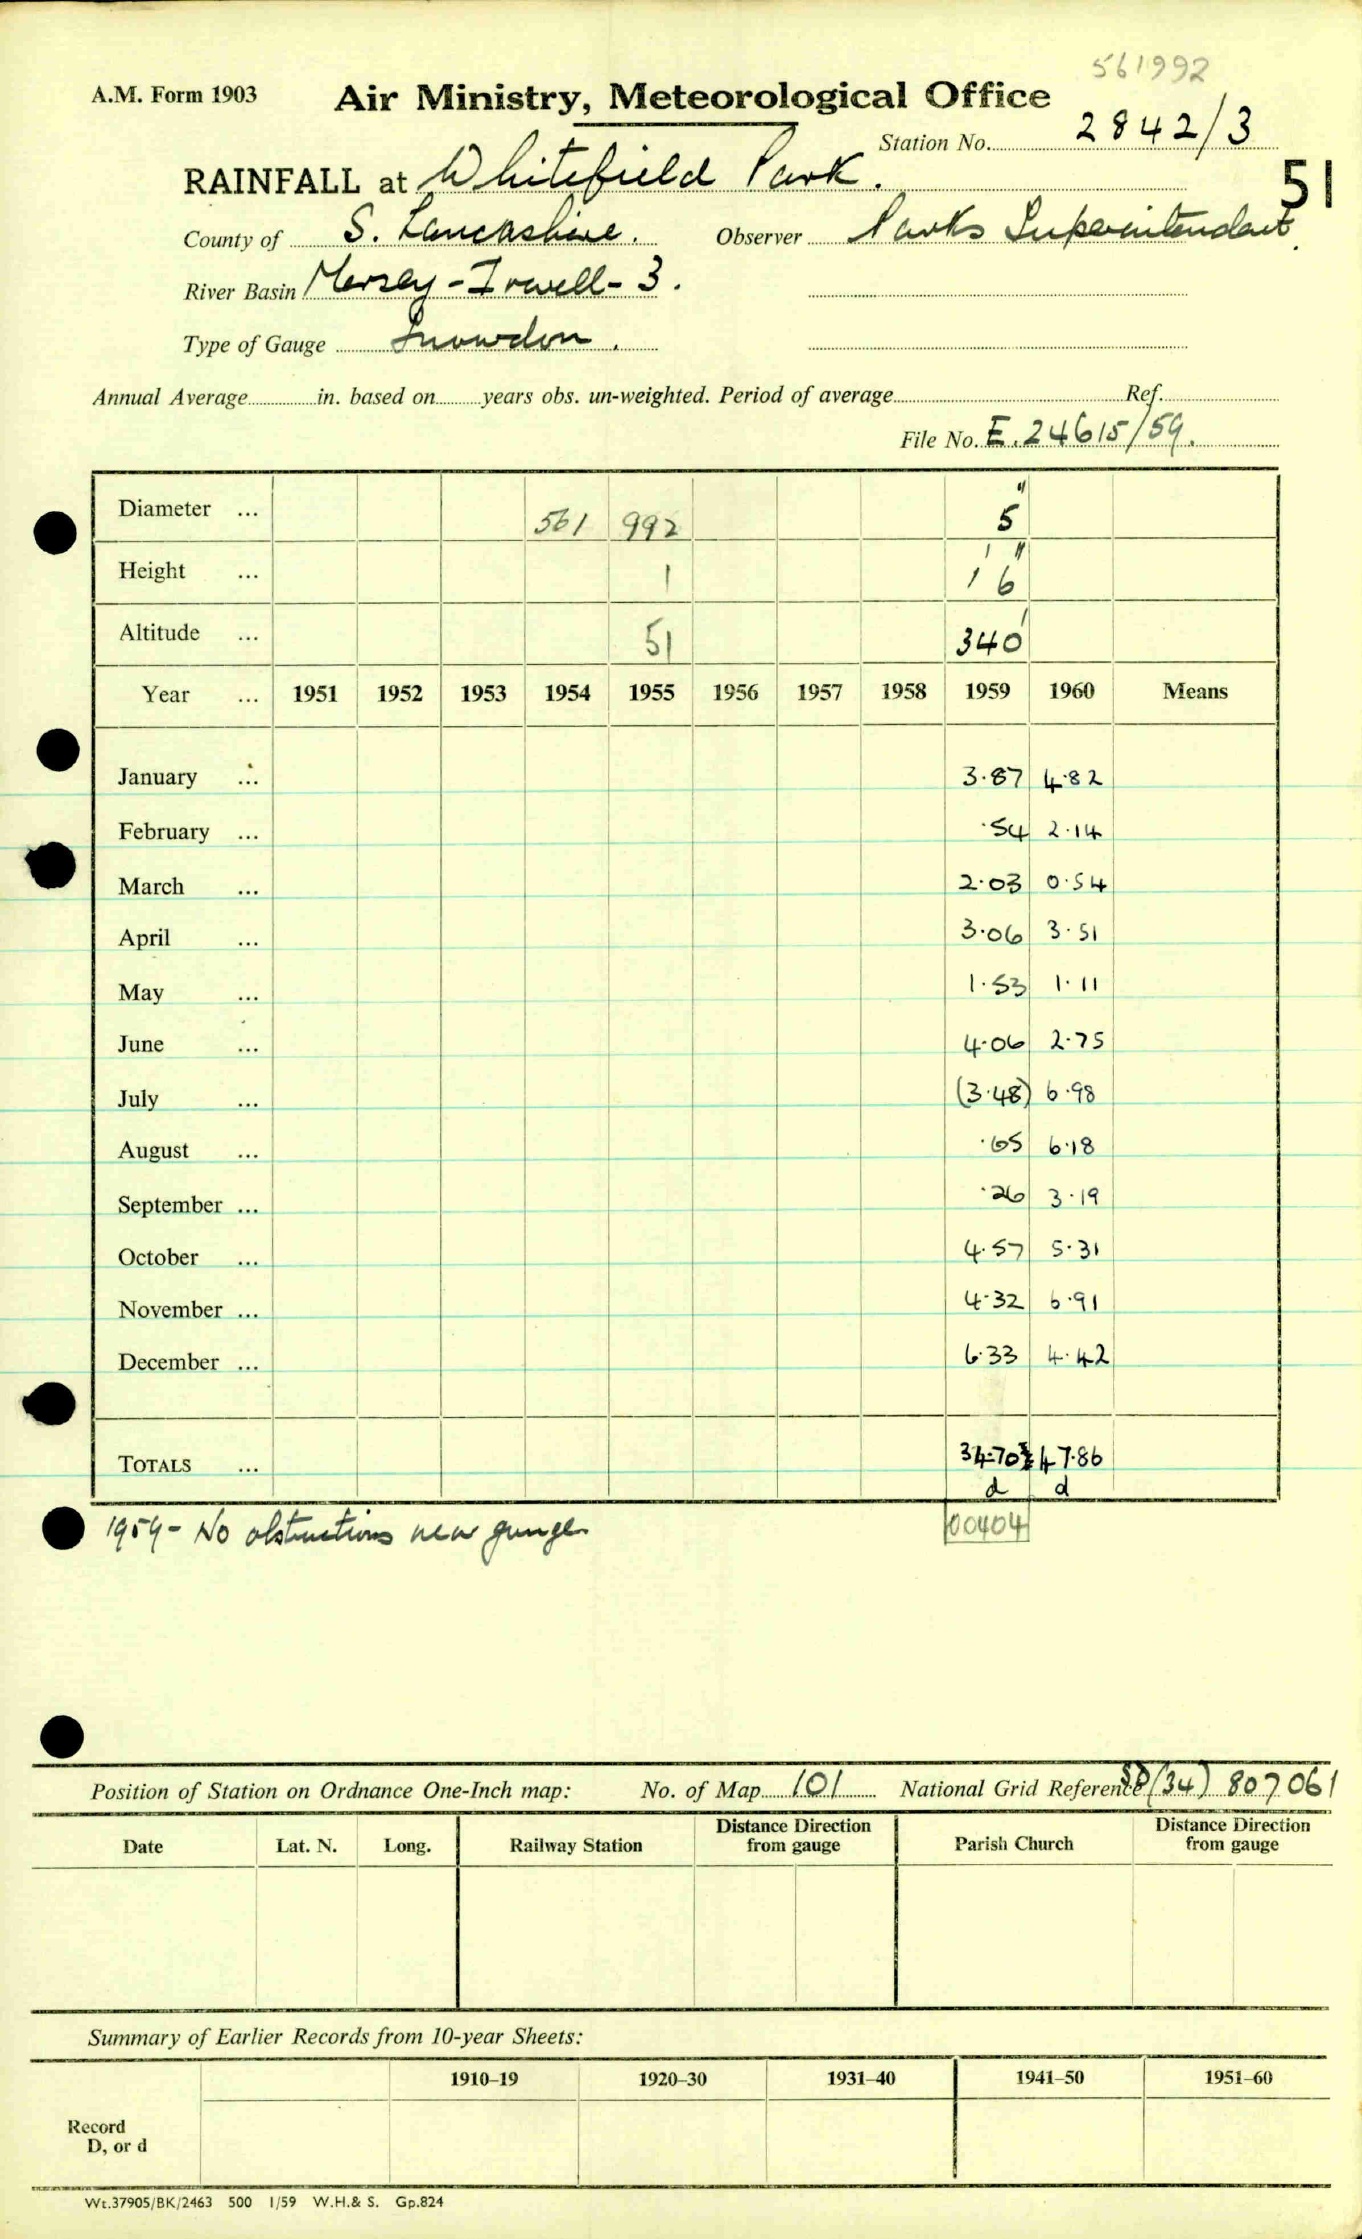 561992
A.M. Form 1903 Air Ministry, Meteorological Office
Station No. 2842/3
RAINFALL at Whitefield Park. 51
County of S. Lancashire. Observer Parks Superintendent.
River Basin Mersey-Irwell-3.
Type of Gauge Snowdon.
Annual Average in. based on years obs. un-weighted. Period of average Ref.
File No. E.24615/59.
Diameter ... 561 992 5"
Height ... 1 1' 6"
Altitude ... 51 340'
Year ... 1951 1952 1953 1954 1955 1956 1957 1958 1959 1960 Means
January ... 3.87 4.82
February ... .54 2.14
March ... 2.03 0.54
April ... 3.06 3.51
May ... 1.53 1.11
June ... 4.06 2.75
July ... (3.48) 6.98
August ... .65 6.18
September ... .26 3.19
October ... 4.57 5.31
November ... 4.32 6.91
December ... 6.33 4.42
TOTALS ... 34.70 47.86
d d
1959 - No obstructions near gauge. 00404
Position of Station on Ordnance One-Inch map: No. of Map 101 National Grid Reference SD(34) 807061
Date Lat. N. Long. Railway Station Distance Direction from gauge Parish Church Distance Direction from gauge
Summary of Earlier Records from 10-year Sheets:
1910–19 1920–30 1931–40 1941–50 1951–60
Record
D, or d
Wt.37905/BK/2463 500 1/59 W.H.& S. Gp.824